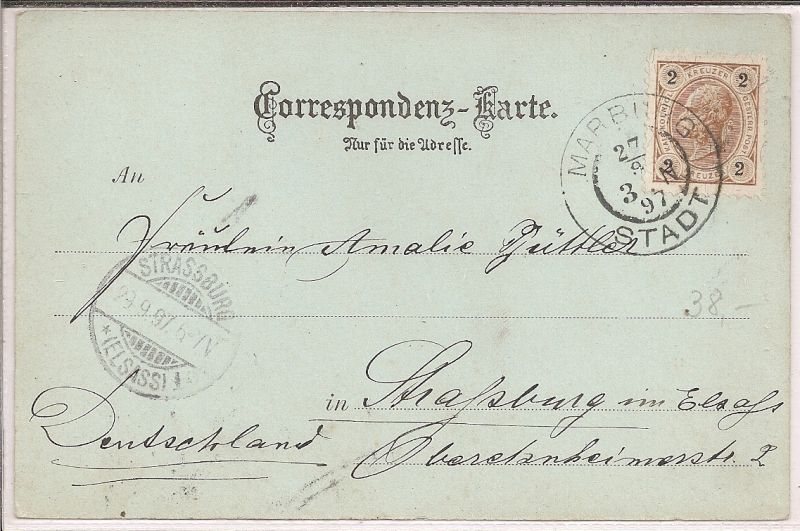 Correspondenz-Karte.
Nur für die Adresse.
2 KREUZER 2
2 KREUZER 2
MARBURG
27/9
3 N
97
STADT
An
Fräulein Amalie Züttler
STRASSBURG
29.9.97. 6-7N
* (ELSASS)
38-
in Straßsburg im Elsaß
Deutschland
2